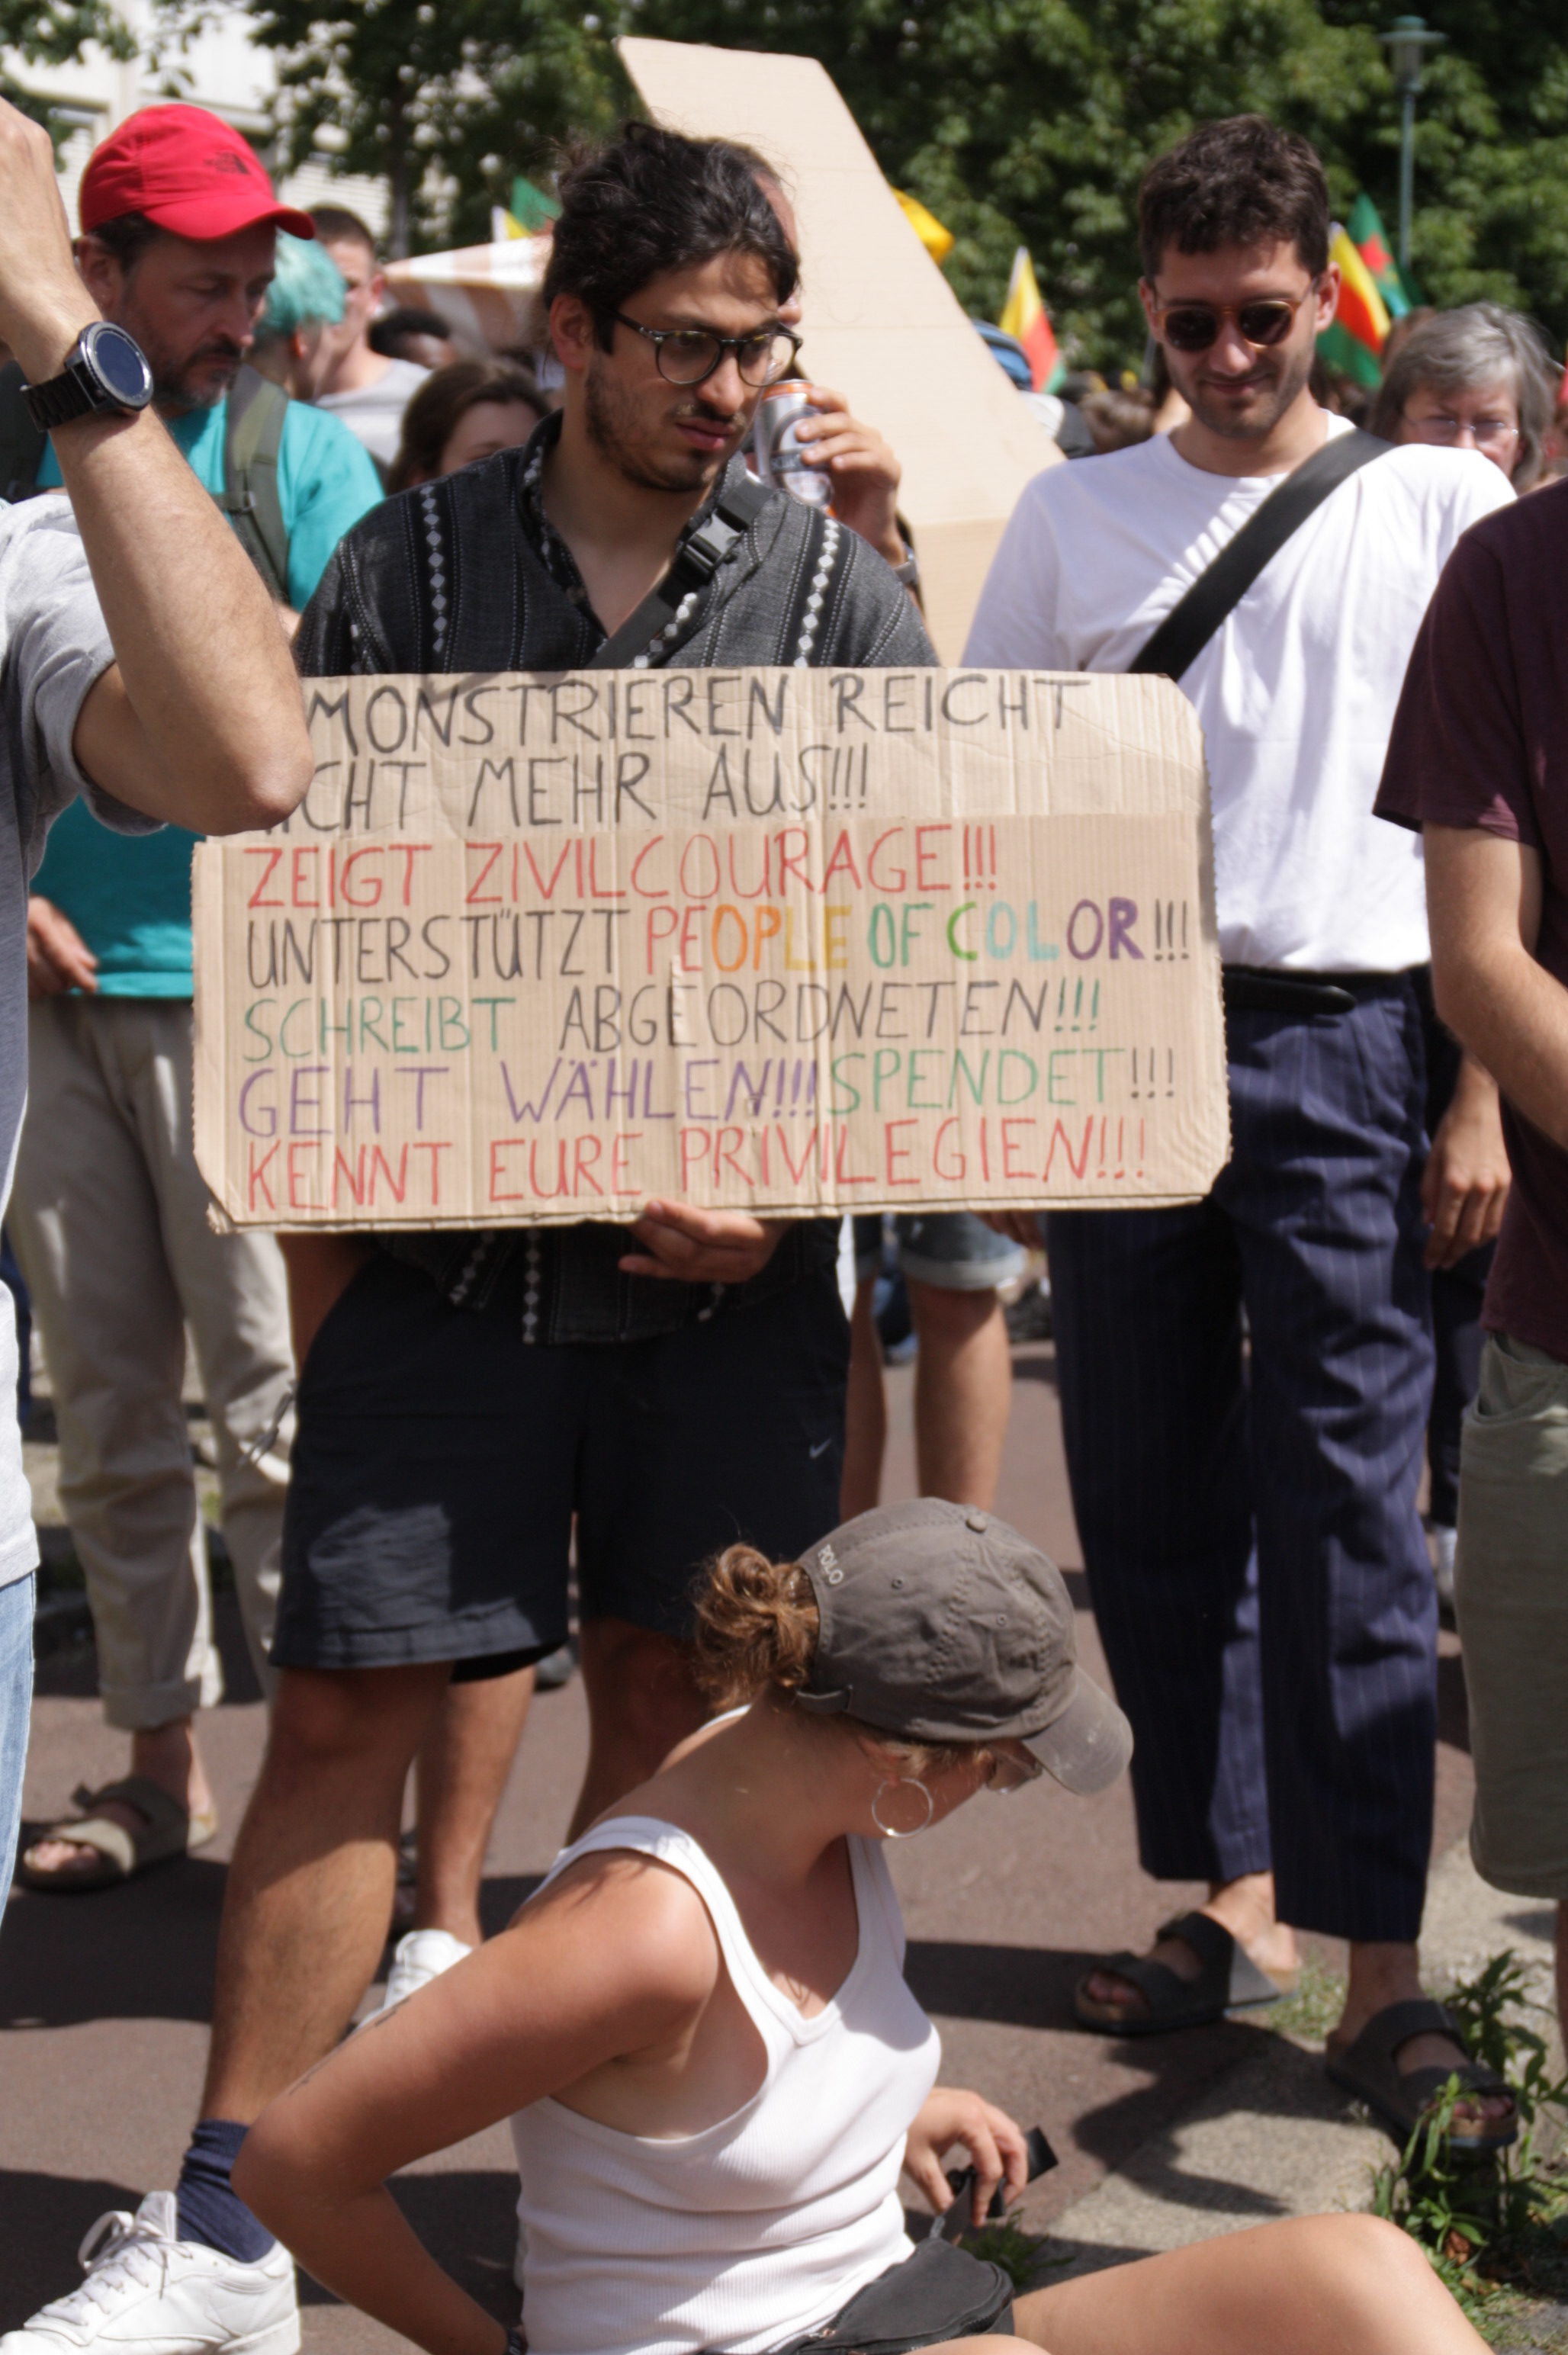 MONSTRIEREN REICHT
ICHT MEHR AUS!!!
ZEIGT ZIVILCOURAGE!!!
UNTERSTÜTZT PEOPLE OF COLOR!!!
SCHREIBT ABGEORDNETEN!!!
GEHT WÄHLEN!!! SPENDET!!!
KENNT EURE PRIVILEGIEN!!!
POLO